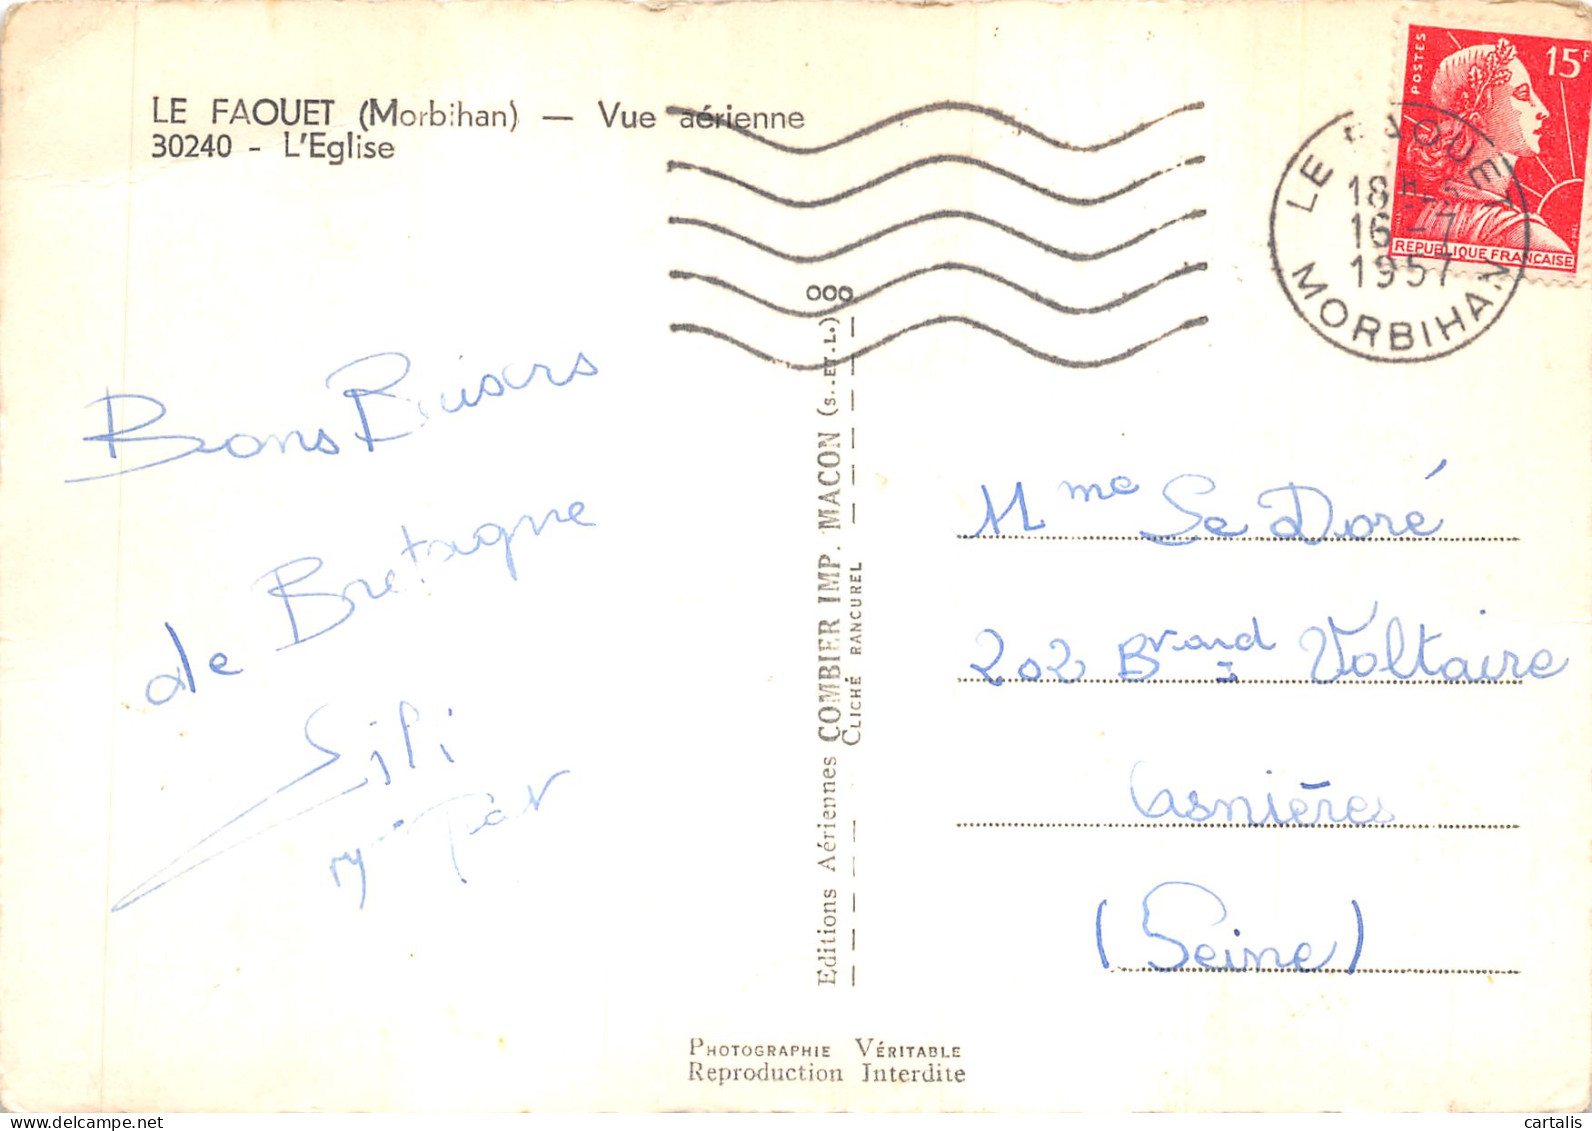 LE FAOUET (Morbihan) — Vue aérienne
30240 - L'Eglise
POSTES
15F
REPUBLIQUE FRANCAISE
LE FAOUET
18H
16-7
1957
MORBIHAN
Bons Baisers
de Bretagne
Lili
Editions Aériennes COMBIER IMP. MACON (S.-ET-L.)
CLICHÉ RANCUREL
Mme Le Doré
202 Bvard Voltaire
Asnières
(Seine)
PHOTOGRAPHIE VÉRITABLE
Reproduction Interdite
cartalis